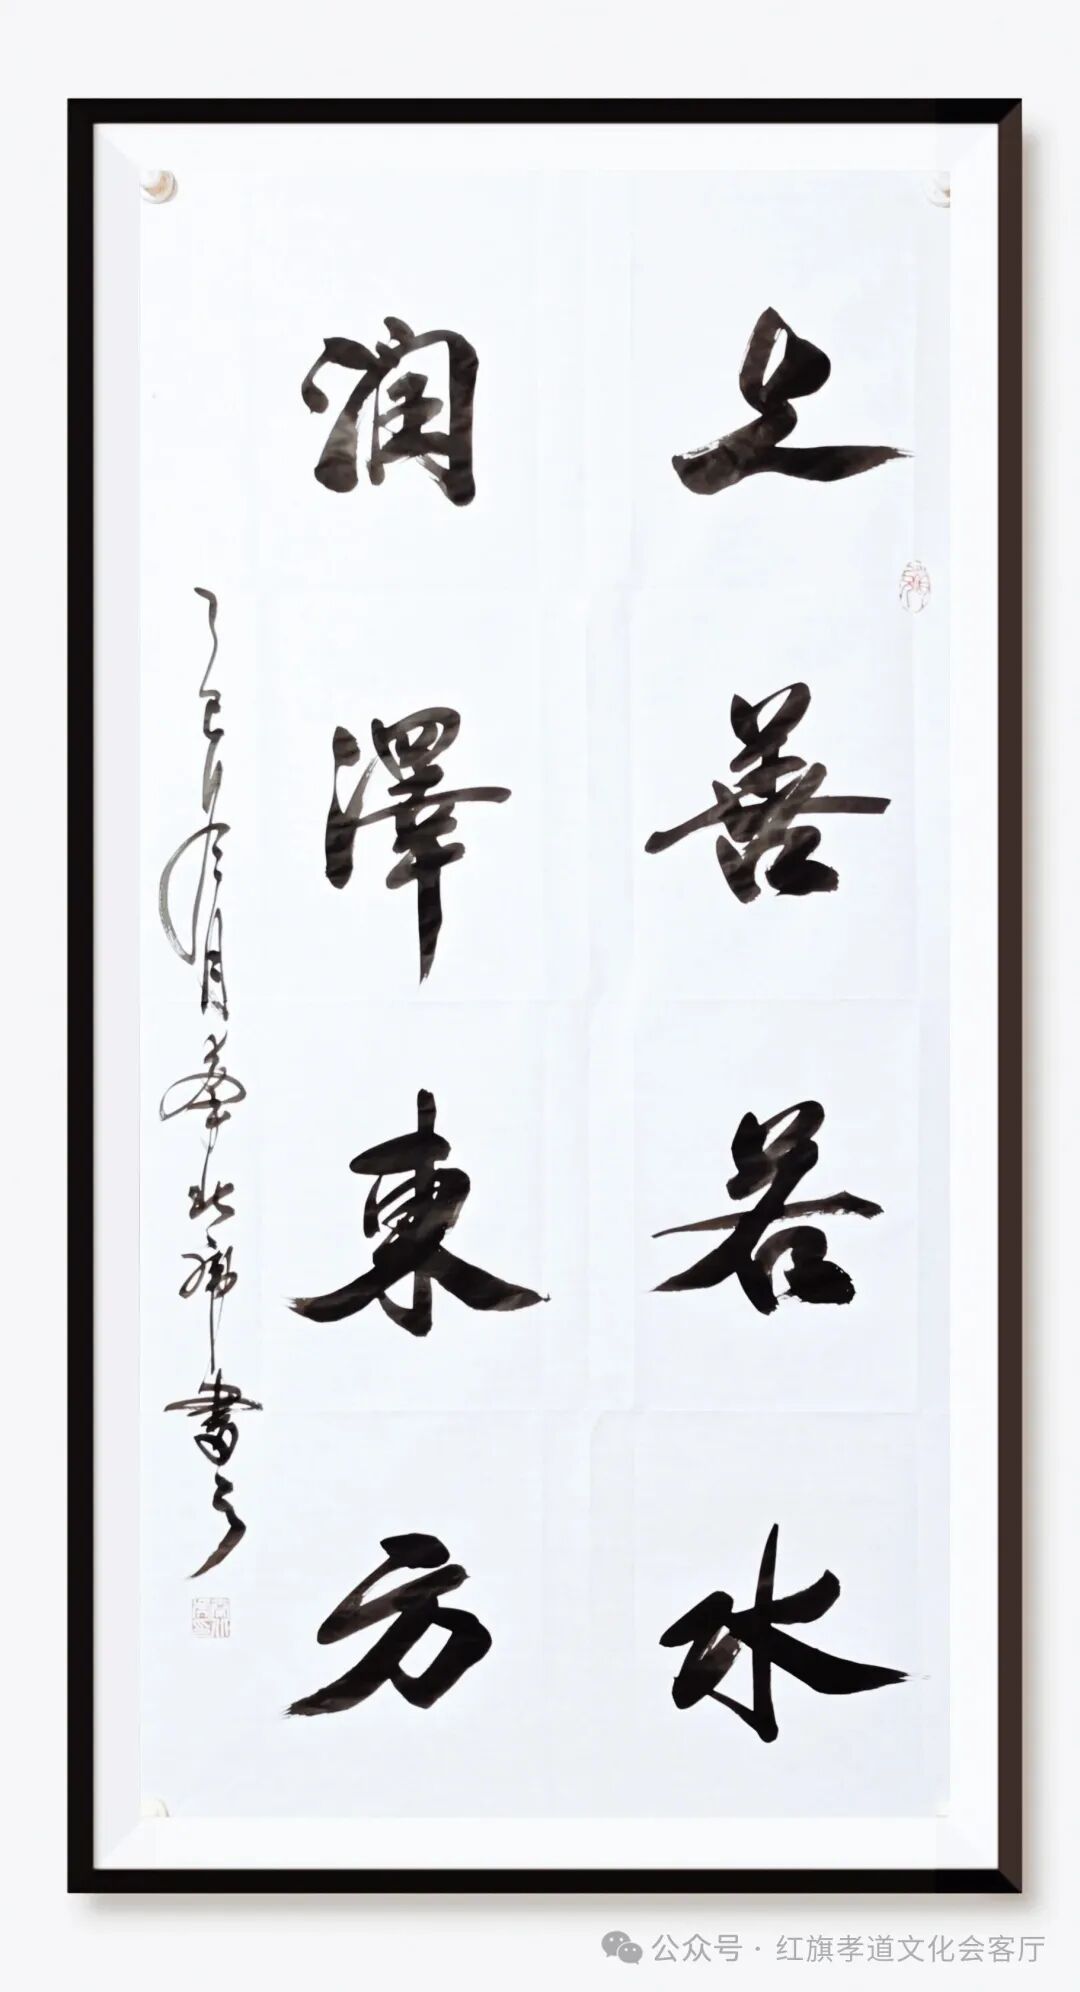 上善若水
潤澤東方
乙巳年冬月 書
公众号 · 红旗孝道文化会客厅